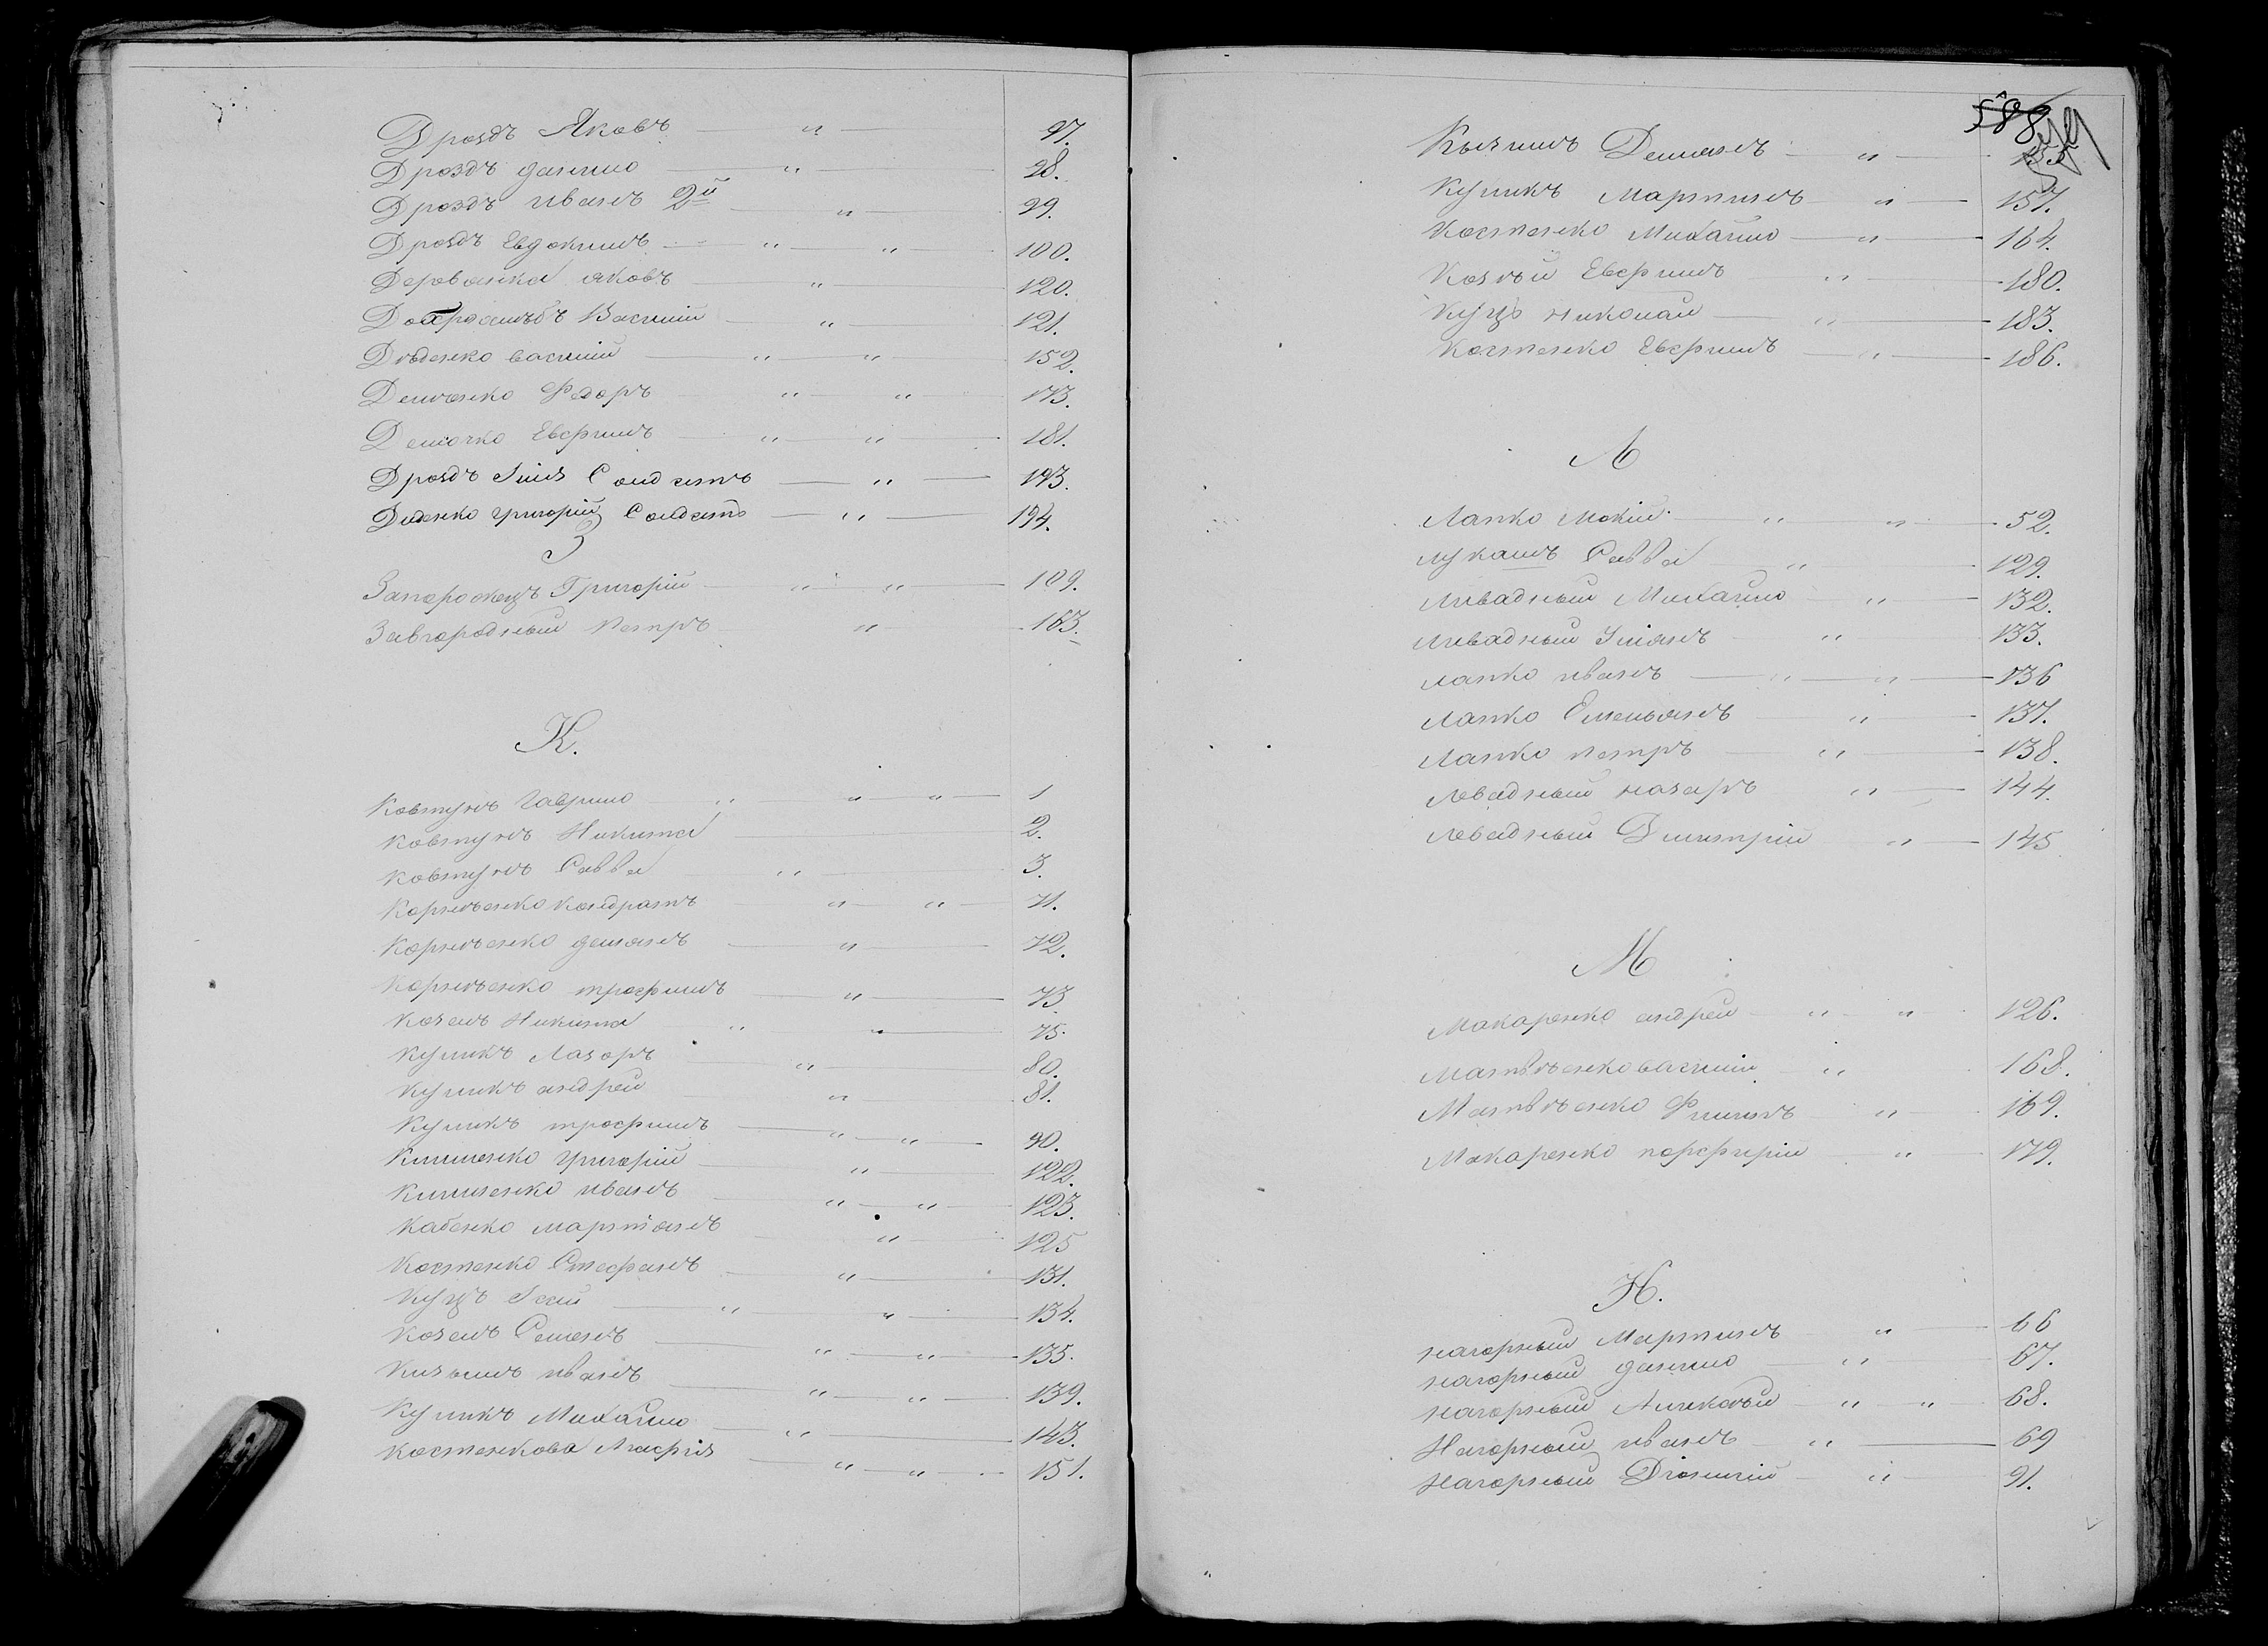 Дроздъ Яковъ — „ — 97.
Дроздъ данило — „ — 98.
Дроздъ иванъ 2й — „ — 99.
Дроздъ Евдокимъ — „ — „ — 100.
Деревянка яковъ — „ — 120.
Василій — „ — 121.
Дѣденко василій — „ — „ — 152.
Демченко Федоръ — „ — „ — 173.
Евфимъ — „ — „ — 181.
Дроздъ Илія Солдатъ — „ — 193.
Диденко григорій Солдатъ — „ — 194.
З
Запорожецъ Григорій — „ — „ — 109.
Завгородный Петръ — „ — 163.
К.
Ковтунъ Гаврило — „ — „ — „ — 1
Ковтунъ Никита — 2.
Ковтунъ Савва — „ — 3.
Корнѣенко кондратъ — „ — „ — 71.
Корнѣенко демянъ — „ — 72.
Корнѣенко трофимъ — „ — 73
Козелъ Никита — „ — „ — 75.
Куликъ Лазоръ — „ — 80.
Куликъ андрей — „ — 81.
Куликъ трофимъ — „ — „ — 90.
Клименко григорій — „ — 122.
Клименко иванъ — „ — „ — 123.
Кабенко мартіанъ — „ — 125
Костенко Стефанъ — „ — 131.
Куцъ — „ — „ — 134.
Козелъ Семенъ — „ — „ — 135.
Кизымъ иванъ — „ — „ — 139.
Куликъ Михайло — „ — 143.
Костенкова Агафія — „ — „ — 151.
588
Кызымъ Демянъ — „ —
Куликъ Мартинъ — „ — 157.
Костенко Михайло — „ — 164.
Евфимъ — „ — 180.
Куцъ николай — „ — 183.
Костенко Евфимъ — „ — 186.
Л
Лапко Мокій — „ — „ — 52.
Лукашъ Савва — „ — 129.
Ливадный Михайло — „ — 132.
Ливадный Уліянъ — „ — 133.
Лапко иванъ — „ — „ — 136
Лапко Емельянъ — „ — 137.
Лапко петръ — „ — 138.
Левадный назаръ — „ — 144.
Левадный Димитрій — „ — 145
М
Макаренко андрей — „ — „ — 126.
Матвѣенко василій — „ — 168.
Матвѣенко Филипъ — „ — 169.
Макаренко порфирій — „ — 179.
Н.
нагорный Мартинъ — „ — 66
нагорный данило — „ — 67.
нагорный Алексѣй — „ — „ — 68.
Нагорный иванъ — „ — 69
Нагорный Діонисій — „ — 91.